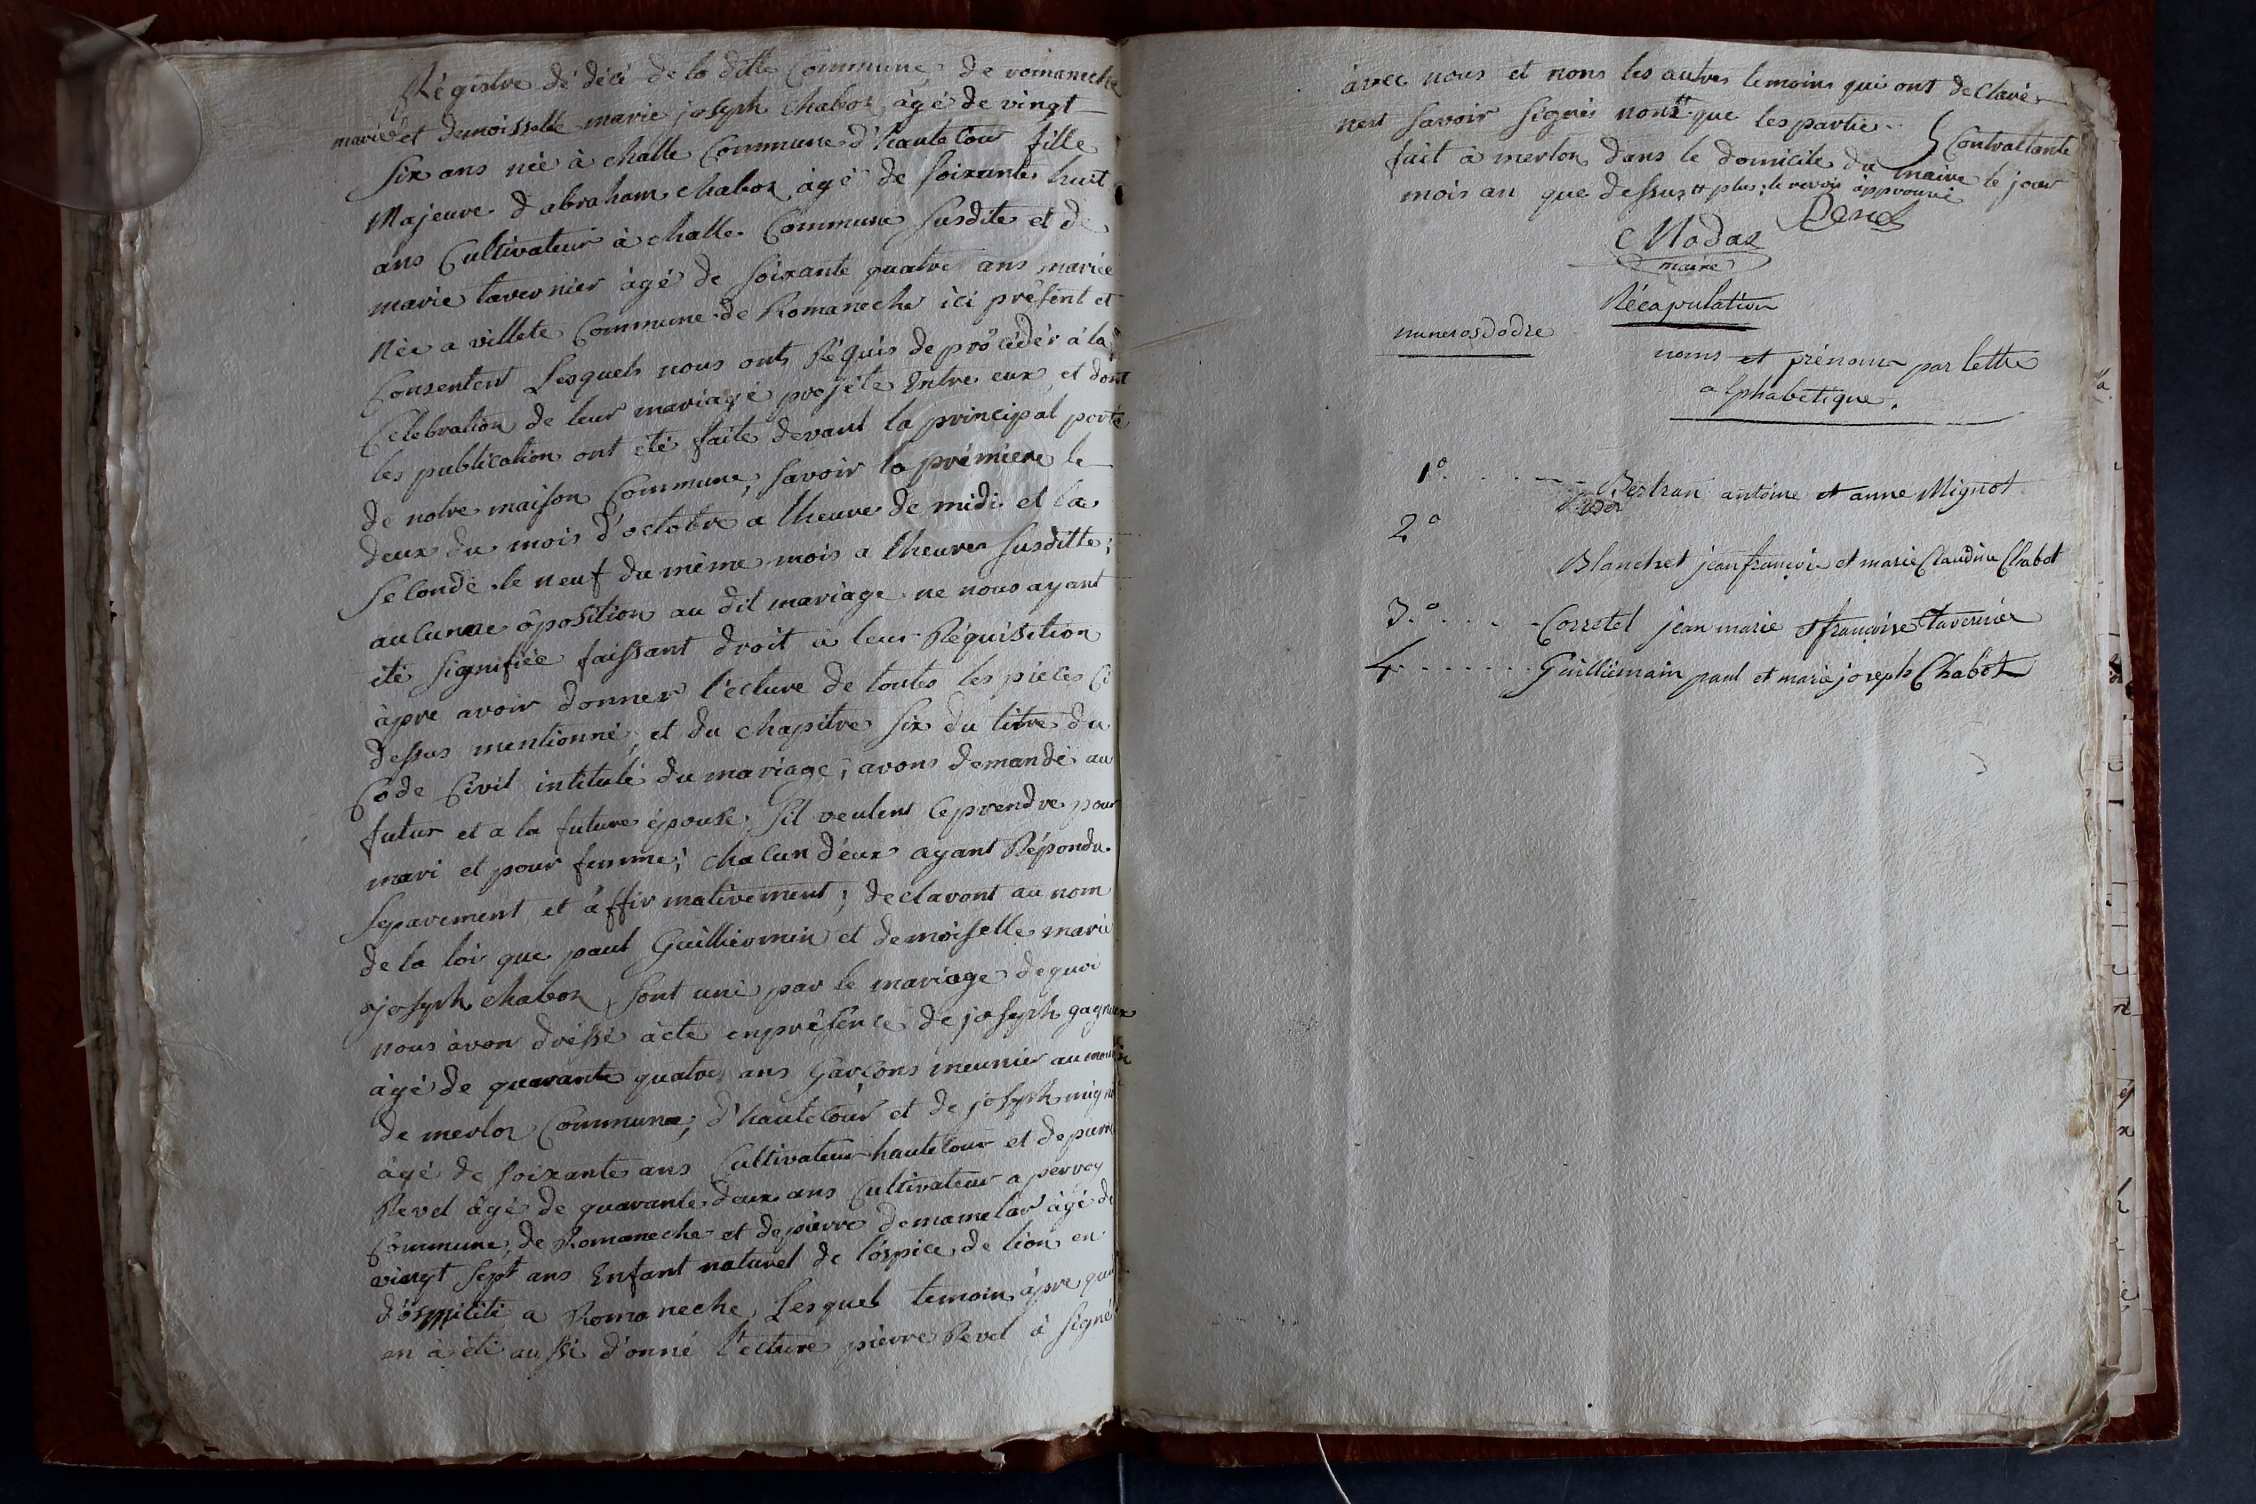 Régistre dé décé de la ditte Commune, de romaneche
mariée et demoisselle marie joseph chabot, âgé de vingt
six ans née à challe Commune d'hautecour fille
Majeure d'abraham chabot âgé de soixante huit
ans Cultivateur à challe Commune susdite et de
marie tavernier âgé de soixante quatre ans mariée
Née a villete Commune de Romaneche ici présent et
Consentent Lesquels nous onts Réquis de procédér à la
Célébration de leur mariage projété Entre eux, et dont
les publication ont été faite devant la principal porte
de notre maison Commune, savoir la première le
deux du mois d'octobre a lheure de midi et la
seconde le neuf du même mois a lheure susditte;
aucunne ôposition au dit mariage ne nous ayant
été signifiée faissant droit a leur Réquisition
àpre avoir donner l'ecture de toutes les pièces Ci
dessus mentionné, et du chapitre six du titre du
Code Civil intitulé du mariage; avons demandé au
futur et a la future épouse s'il veulent ceprendre pour
mari et pour femme; chacun d'eux ayant Répondu
séparement et affirmativement; declaront au nom
de la loi que paul Guilliermin et demoiselle marie
joseph chabot sont uni par le mariage dequoi
nous avon dréssé àcte enprésence de joseph gagneux
âgé de quarante quatre ans Garçons meunier au moulin
de merloz Commune; d'hautecour et de joseph mignot
âgé de soixante ans Cultivateur hautecour et de pierre
Revel âgé de quarante deux ans Cultivateur a pervoy
Commune, de Romaneche et depierre demamelar âgé de
vingt sept ans Enfant naturel de l'ospice, de lion en
a Romaneche, Lesquel temoin àpre que
en à été aussi d'onné l'ecture pierre Revel à signé
avec nous et nons les autres temoins qui ont declaré
nest savoir signés nons que les partie Contractante
fait à merloz dans le domicile du maire le jour
mois an que dessus plus; le renvois àpprouvé
Revel
Nodaz
maire
Récapulation
numerosdodre
noms et prénoms par lettre
alphabétique.
1°. Bertran antoine et anne Mignot
2°
Blanchet jean françois et marie Claudine Chabot
3.° Corretel jean marie et françoise tavernier
4. Guilliemain paul et marie joseph Chabot